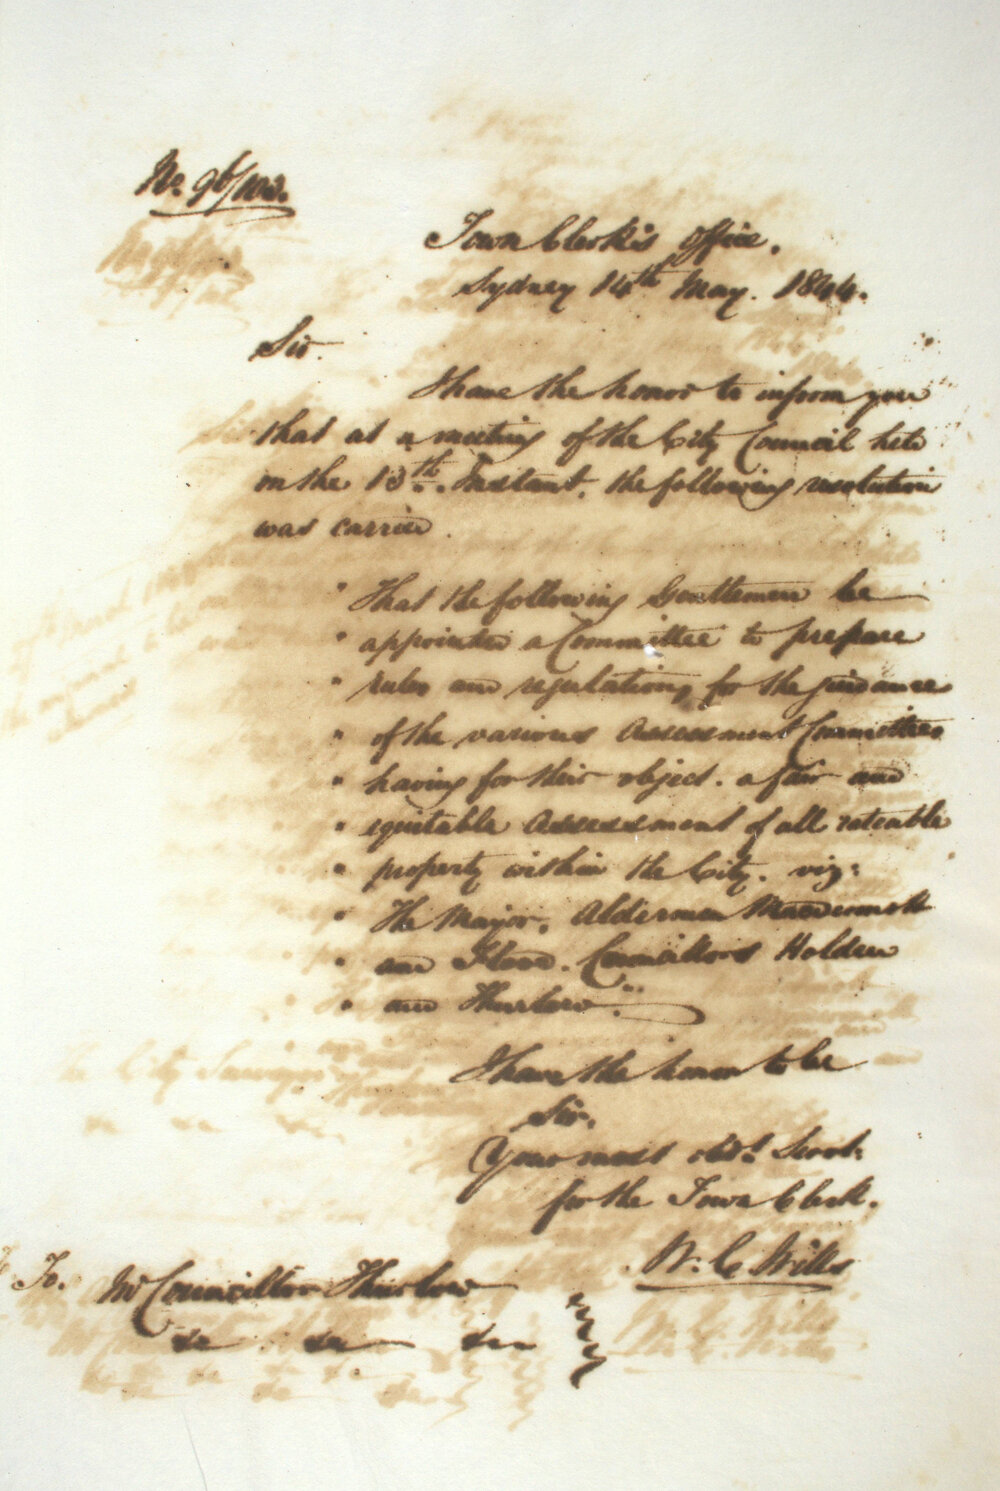 No. 96/103.
Town Clerk's Office.
Sydney 14th May. 1844.
Sir.
I have the honor to inform you
that at a meeting of the City Council held
on the 13th. Instant. the following resolution
was carried.
" That the following Gentlemen be
" appointed a Committee to prepare
" rules and regulations for the guidance
" of the various Assessment Committees
" having for their object. a fair and
" equitable Assessment of all rateable
" property within the City. viz:
" The Mayor, Aldermen Macdermott
" and Flood. Councillors Holden
" and Thurlow."
I have the honor to be
Sir.
Your most obdt. Servt.
for the Town Clerk.
W. C. Wills
To. Mr Councillor Thurlow
&c &c &c